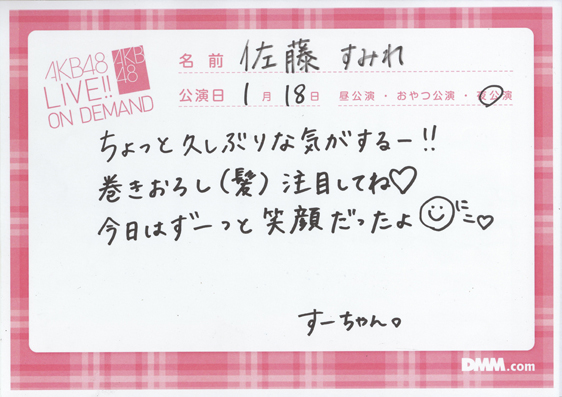 AKB48
LIVE!!
ON DEMAND
AKB
48
名前 佐藤 すみれ
公演日 1月18日 昼公演・おやつ公演・夜公演
ちょっと久しぶりな気がするー!!
巻きおろし(髪)注目してね♡
今日はずーっと笑顔だったよ にこ♡
すーちゃん。
DMM.com